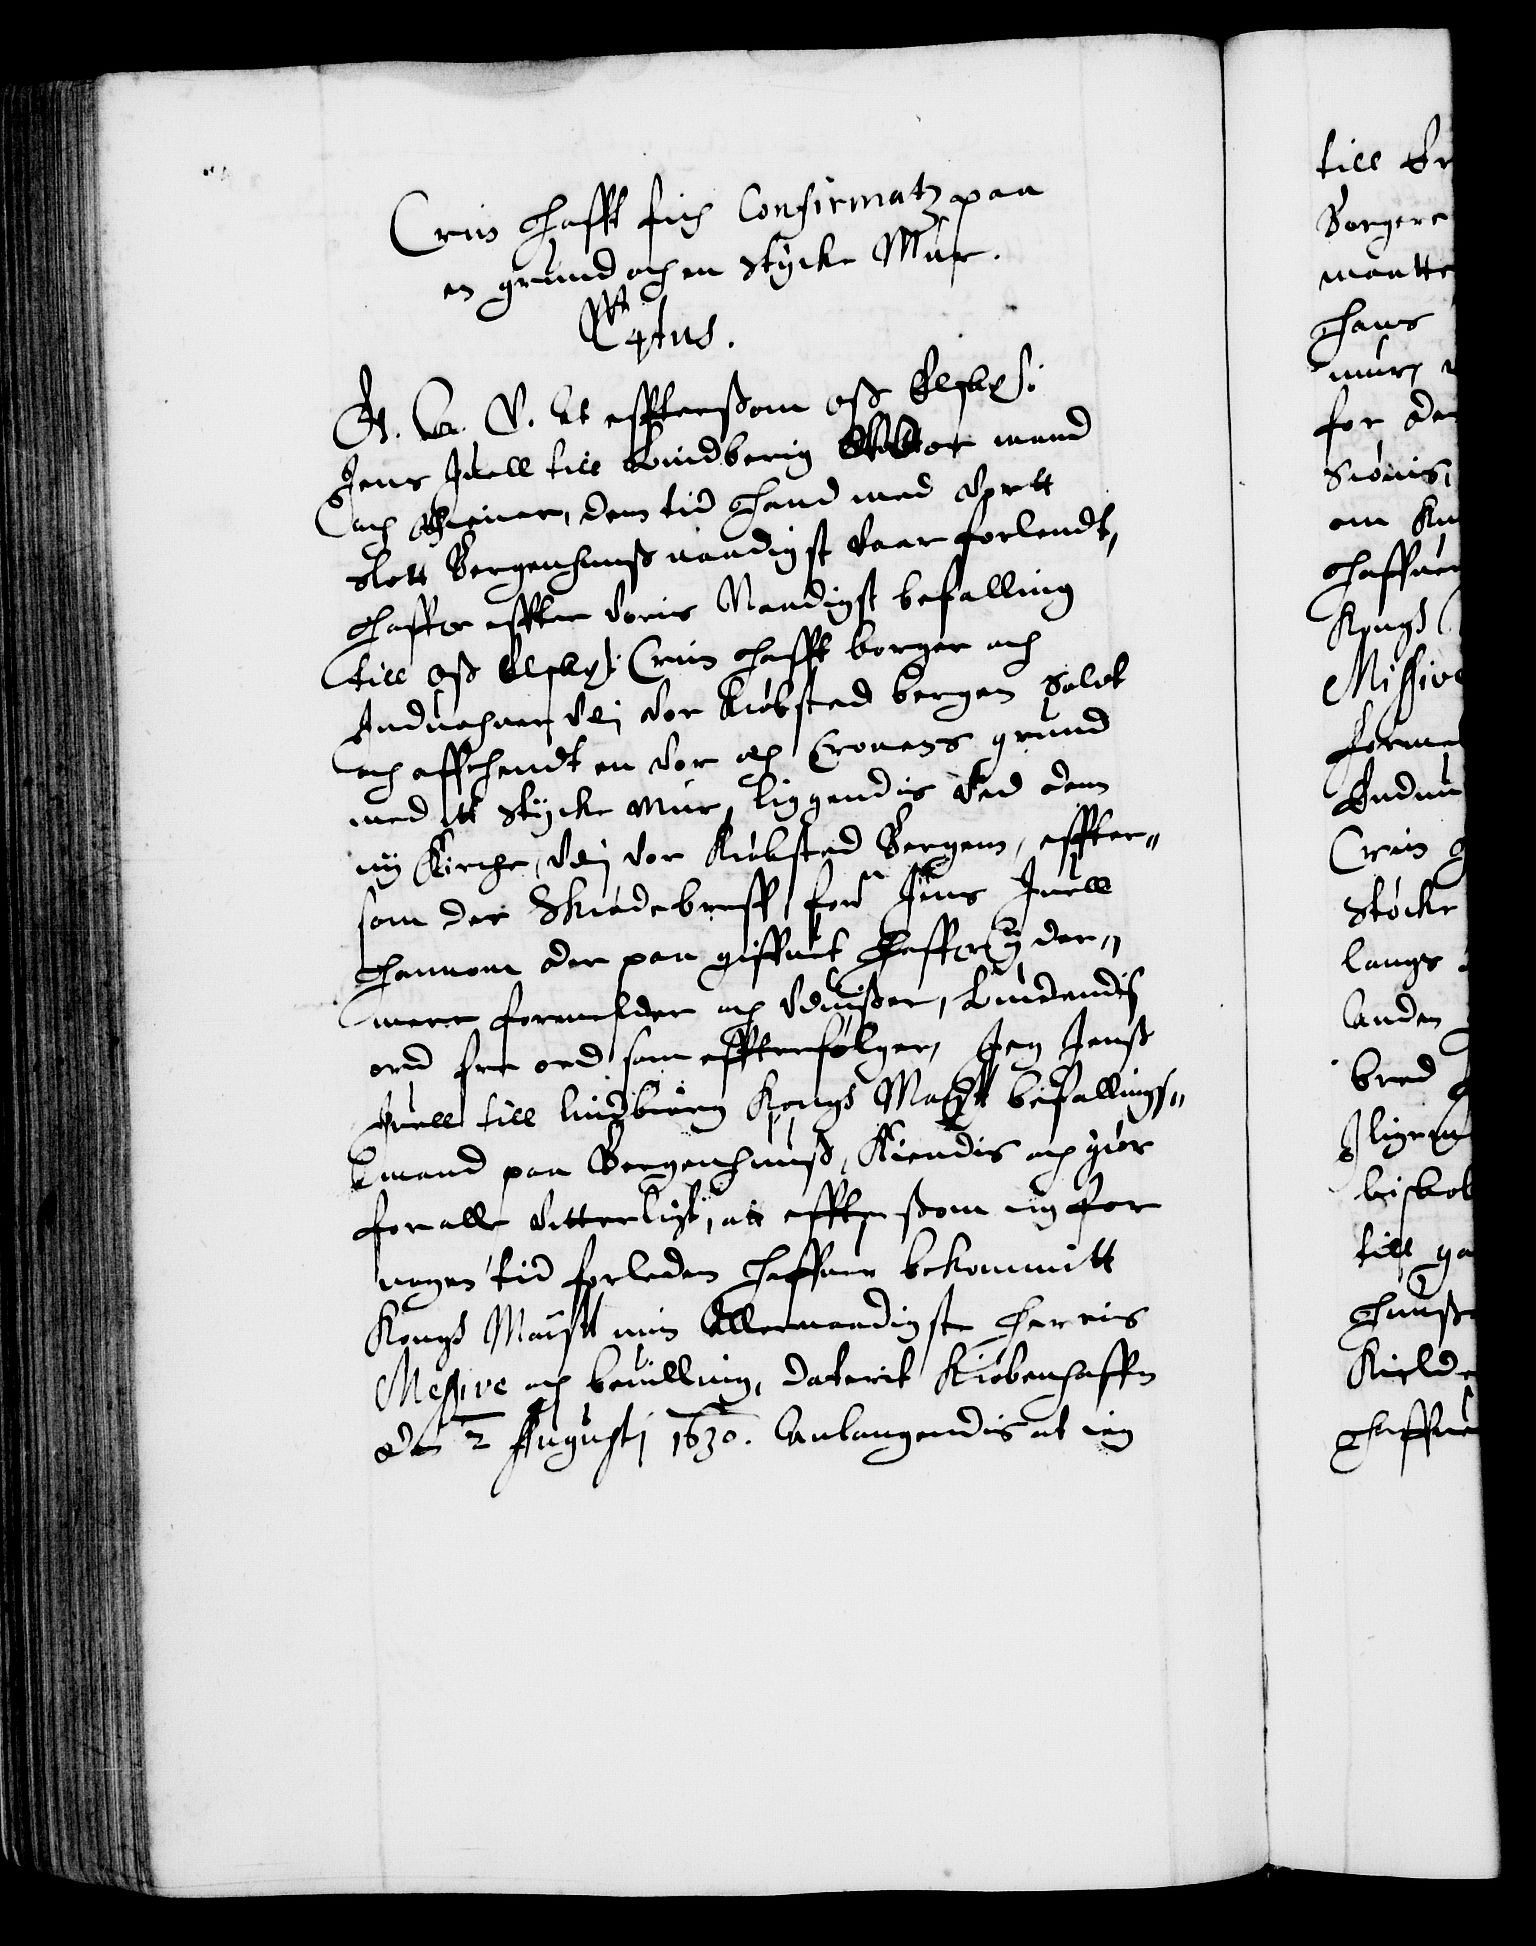 Crin Hafft fich Confirmatz paa
en grund och en Stycke Mur.
C 4tus.
A. G. V. At effterßom oß Elsk:
Jens Juell till Lindberig mand
och thiener, dem tid hand med vortt
Slott Bergenhuuß naadigst vaar forlendt,
haffer effter voris Naadigst befalling
till oß Elskel: Crin Hafft borger och
Induohner vdj vor Kiøbsted bergen Soldt
och affhendt en vor och Cronens grund
med itt Stycke Mur, liggendis ved dem
ny Kirche, vdj vor Kiøbsted Bergen, effter-
som det Skiødebreff forn Jens Juell
hannom der paa giffuit haffer
mere formelder och vduißer, Liudendis
ord fra ord som effterfølger, Jeg Jenß
Juell till lindbierg Kongs Maytt befallings-
mand paa Bergenhuuß, Kiendis och giør
for alle vitterligt, at effterßom ieg for
nogen tid forleden haffuer bekommitt
Kongs Maystt min Allernaadigste herris
Messive och beuilling, daterit Kiøbenhaffn
den 2 Augustj 1630. Anlangendis at ieg
till
Borgere
maatte
hans
mur,
for den
om
haffuer
Kongs
Missive
forme
Induo
Crin
Støcke
langs
Anden
bred
till
huuß
haffue